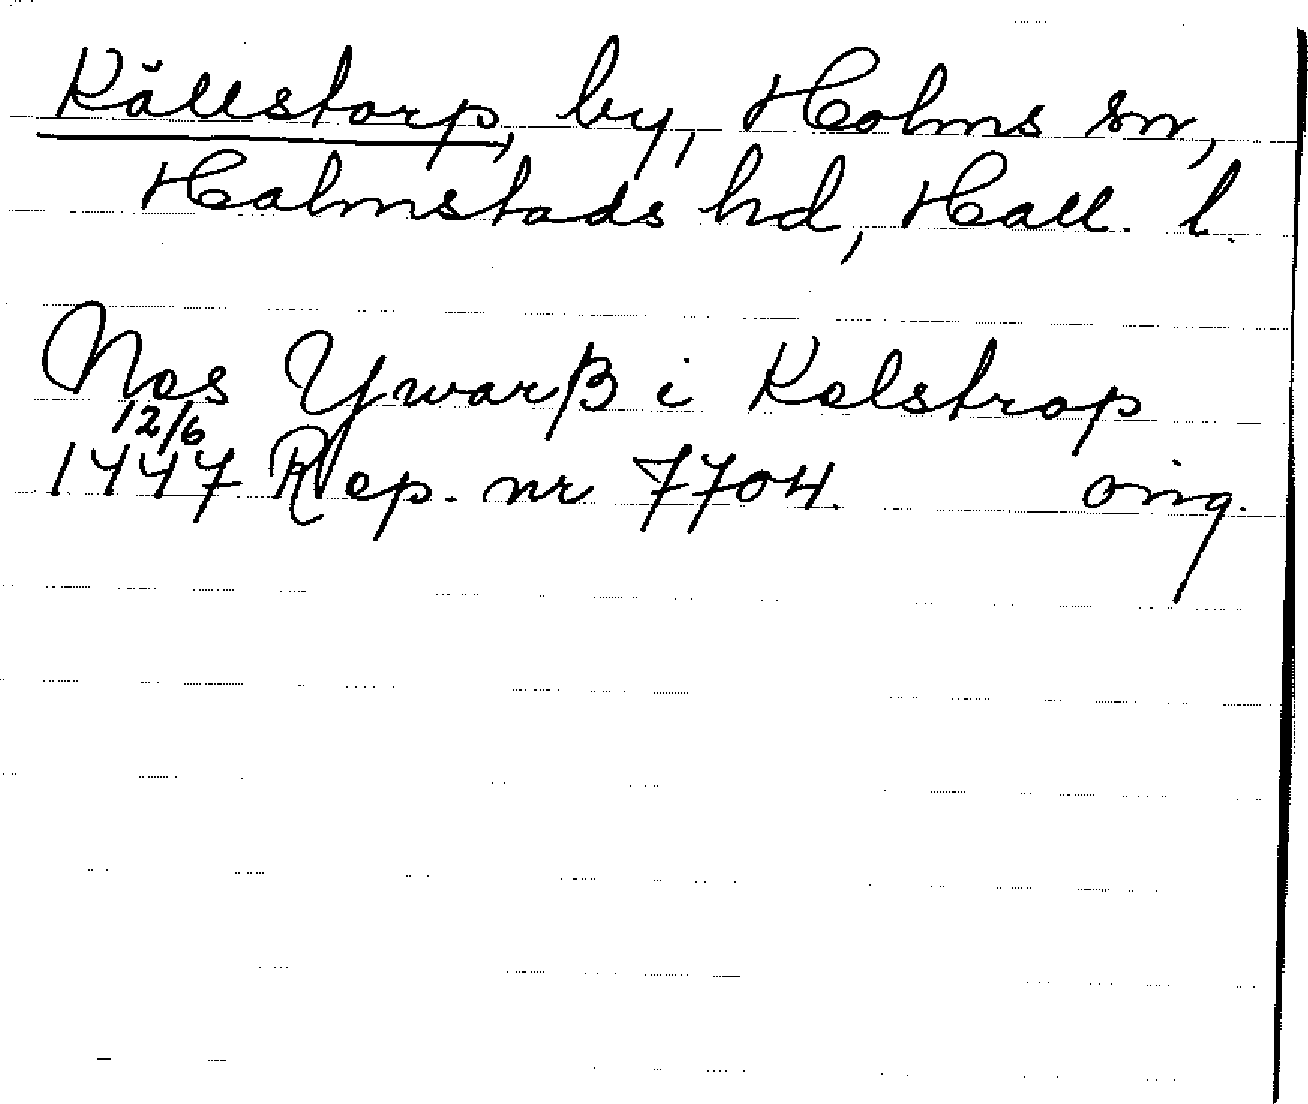 Källstorp, by, Holms sn,
Halmstads hd, Hall. l.
Nes Ywarß i Kelstrop
12/6
1447 Rep. nr 7704. orig.